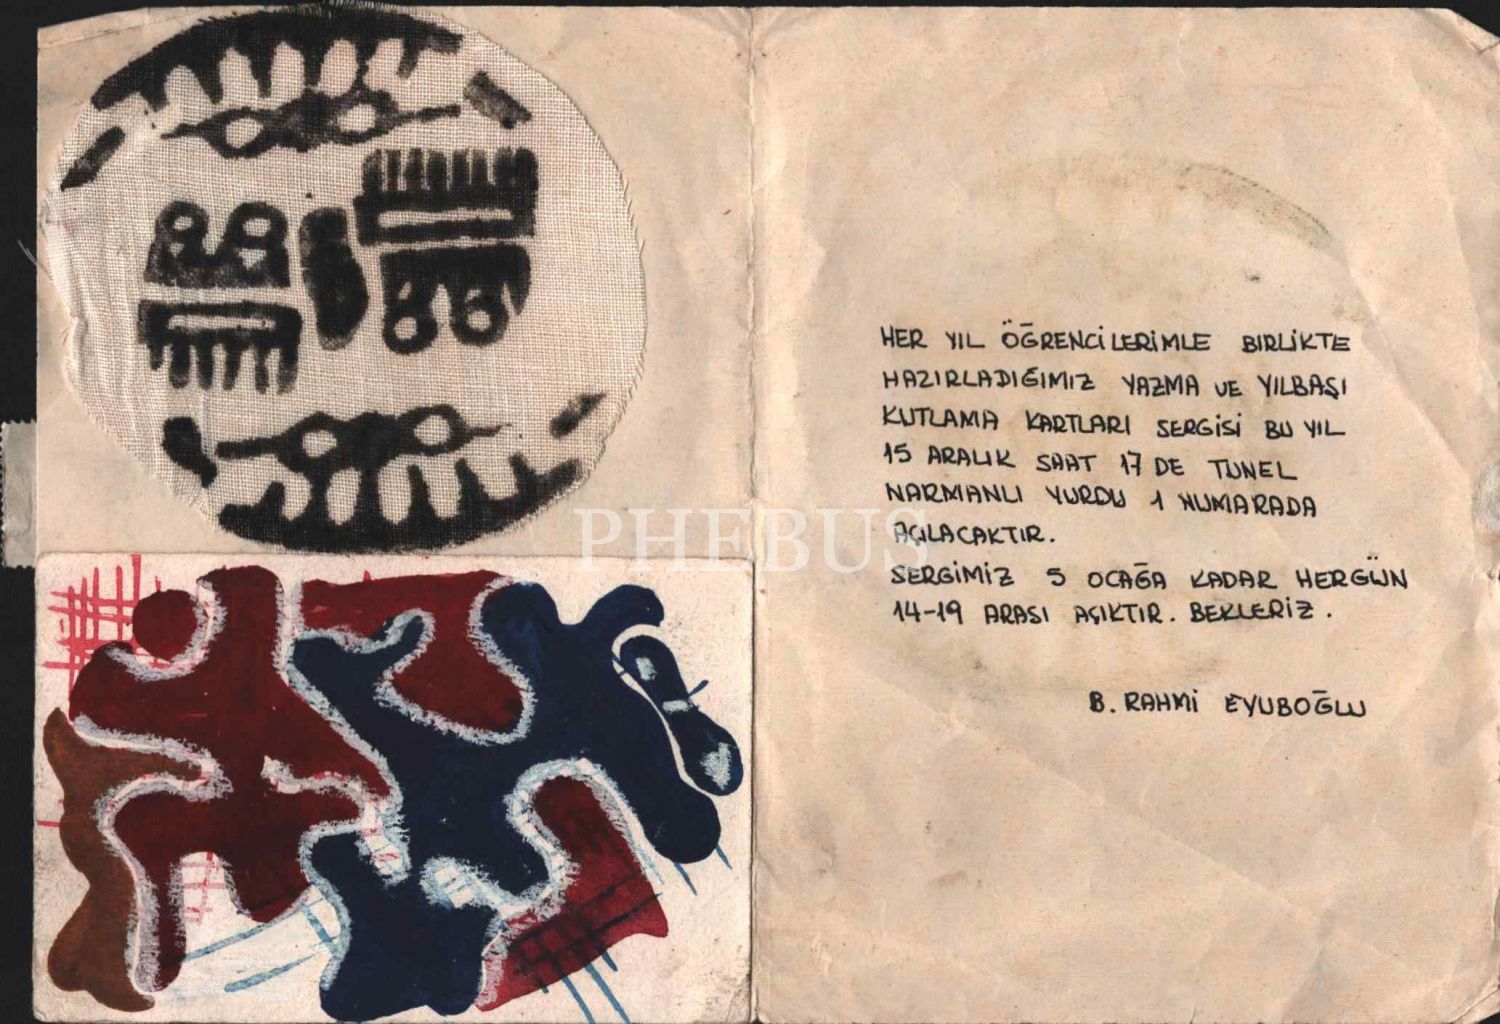 HER YIL ÖĞRENCİLERİMLE BIRLİKTE
HAZIRLADIĞIMIZ YAZMA VE YILBAŞI
KUTLAMA KARTLARI SERGİSİ BU YIL
15 ARALIK SAAT 17 DE TUNEL
NARMANLI YURDU 1 NUMARADA
AÇILACAKTIR.
SERGİMİZ 5 OCAĞA KADAR HERGÜN
14-19 ARASI AÇIKTIR. BEKLERİZ.
B. RAHMİ EYUBOĞLU
PHEBUS